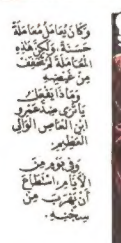 وَكَانَ يُعَامَلُ مُعَامَلَةً
حَسَنَةً، وَلٰكِنَّ هٰذِهِ
الْمُعَامَلَةَ لَمْ تُخَفِّفْ
مِنْ غَضَبِهِ
وَمَاذَا يَفْعَلُ
يَا تُرَى ضِدَّ عَمْرِو
ابْنِ الْعَاصِ الْوَالِي
الْعَظِيمِ
وَفِي يَوْمٍ مِنَ
الْأَيَّامِ اسْتَطَاعَ
أَنْ يَهْرُبَ مِنْ
سِجْنِهِ.